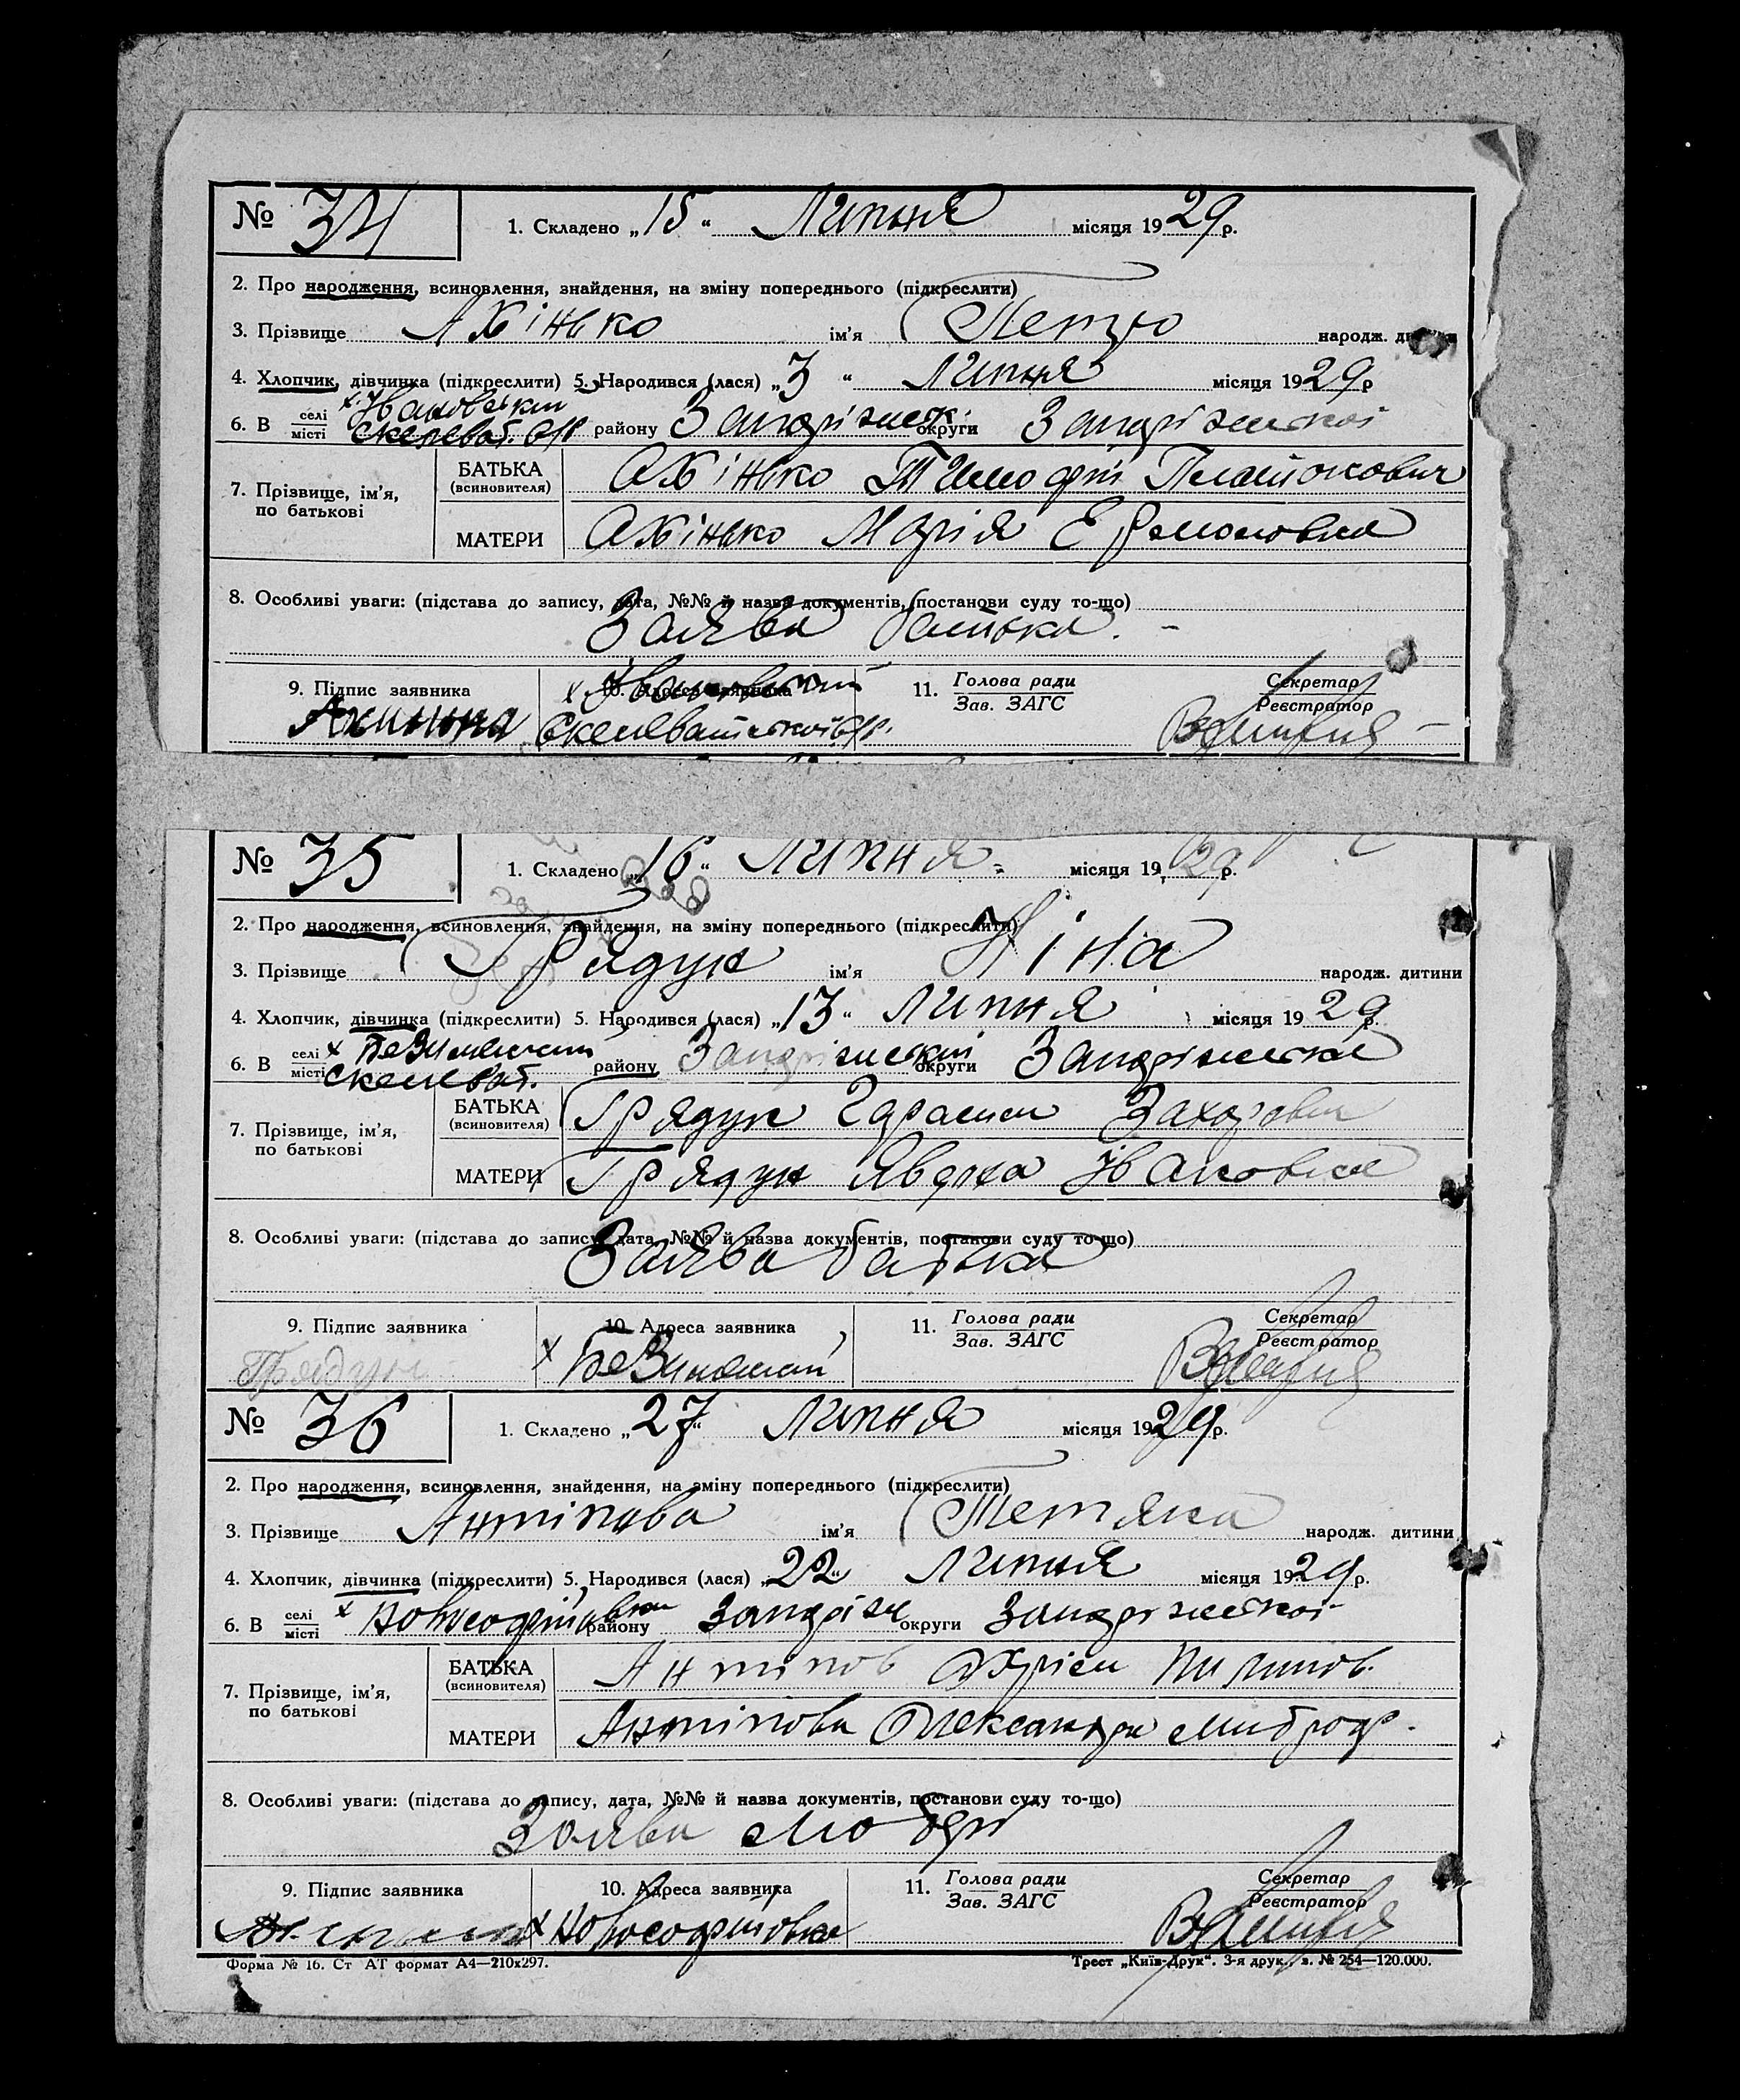 № 34
1. Складено „15“ Липня місяця 1929р.
2. Про народження, всиновлення, знайдення, на зміну попереднього (підкреслити)
3. Прізвище Ахінько ім’я Петро народж.
4. Хлопчик, дівчинка (підкреслити) 5. Народився (лася) „3“ Липня місяця 1929р
6. В селі місті х. Івановськім Скелеват. с/р району Запоріжськ. округи Запоріжської
7. Прізвище, ім’я, по батькові
БАТЬКА (всиновителя) Ахінько Тимофій Платонович
МАТЕРИ Ахінько Марія
8. Особливі уваги: (підстава до запису, дата, №№ й назва документів, постанови суду то-що)
Заява батька. –
9. Підпис заявника 10. Адреса заявника 11. Голова ради Зав. ЗАГС Секретар Реєстратор
х. Івановський
Скелеватської с/р.
№ 35
1. Складено „16“ Липня місяця 1929р.
2. Про народження, всиновлення, знайдення, на зміну попереднього (підкреслити)
3. Прізвище Грядун ім’я Ніна народж. дитини
4. Хлопчик, дівчинка (підкреслити) 5. Народився (лася) „13“ Липня місяця 1929р.
6. В селі місті х Скелеват. району округи Запоріжської
7. Прізвище, ім’я, по батькові
БАТЬКА (всиновителя) Грядун Гарасим Захарович
МАТЕРИ Грядун Явдоха Івановна
8. Особливі уваги: (підстава до запису, дата, №№ й назва документів, постанови суду то-що)
Заява батька
9. Підпис заявника 10. Адреса заявника 11. Голова ради Зав. ЗАГС Секретар Реєстратор
Грядун х
№ 36
1. Складено „27“ Липня місяця 1929р.
2. Про народження, всиновлення, знайдення, на зміну попереднього (підкреслити)
3. Прізвище Антіпова ім’я Тетяна народж. дитини
4. Хлопчик, дівчинка (підкреслити) 5. Народився (лася) „22“ Липня місяця 1929р.
6. В селі місті х Новософіївки району Запоріж округи Запоріжської
7. Прізвище, ім’я, по батькові
БАТЬКА (всиновителя) Антіпов
МАТЕРИ Антіпова Олександра Митроф.
8. Особливі уваги: (підстава до запису, дата, №№ й назва документів, постанови суду то-що)
Заява
9. Підпис заявника 10. Адреса заявника 11. Голова ради Зав. ЗАГС Секретар Реєстратор
х Новософіївка
Форма № 16. Ст АТ формат А4—210х297. Трест „Київ-Друк“. 3-я друк., з. № 254—120.000.